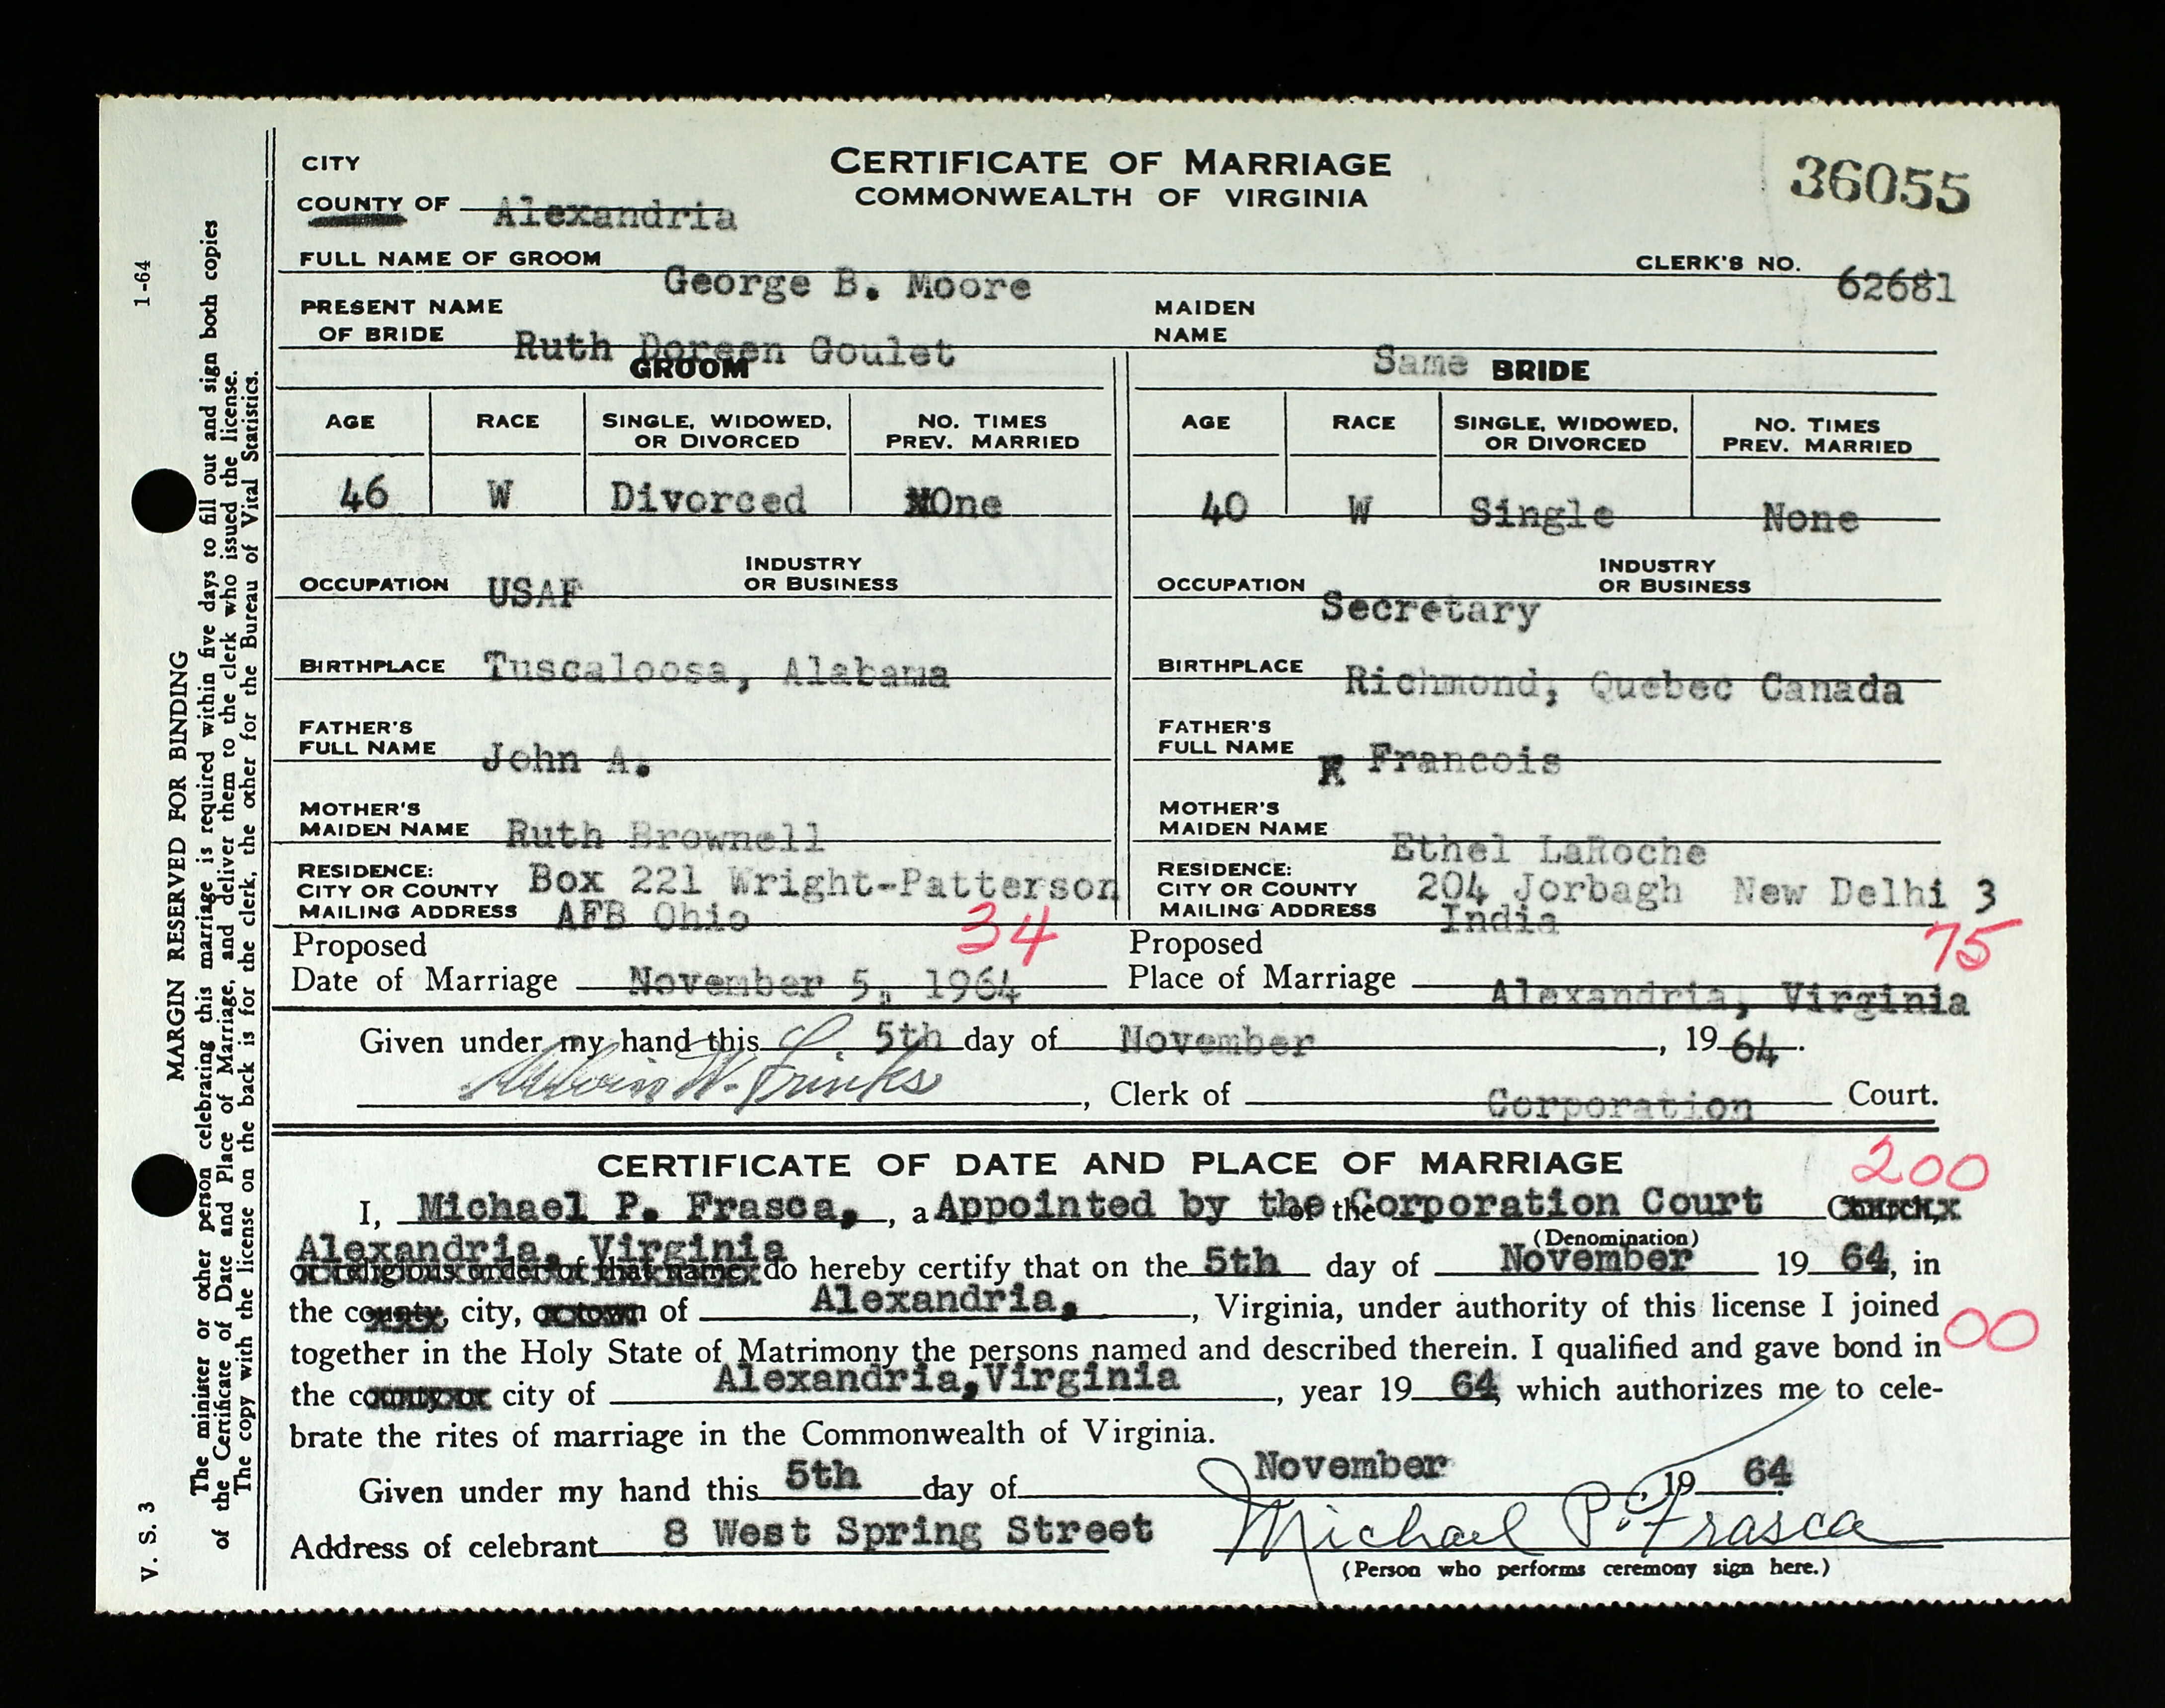 CITY
CERTIFICATE OF MARRIAGE
36055
COUNTY OF Alexandria
COMMONWEALTH OF VIRGINIA
FULL NAME OF GROOM George B. Moore CLERK'S NO. 62681
PRESENT NAME OF BRIDE Ruth Doreen Goulet MAIDEN NAME Same
GROOM BRIDE
AGE RACE SINGLE, WIDOWED, OR DIVORCED NO. TIMES PREV. MARRIED AGE RACE SINGLE, WIDOWED, OR DIVORCED NO. TIMES PREV. MARRIED
46 W Divorced One 40 W Single None
OCCUPATION USAF INDUSTRY OR BUSINESS OCCUPATION Secretary INDUSTRY OR BUSINESS
BIRTHPLACE Tuscaloosa, Alabama BIRTHPLACE Richmond, Quebec Canada
FATHER'S FULL NAME John A. FATHER'S FULL NAME Francois
MOTHER'S MAIDEN NAME Ruth Brownell MOTHER'S MAIDEN NAME Ethel LaRoche
RESIDENCE: CITY OR COUNTY MAILING ADDRESS Box 221 Wright-Patterson AFB Ohio RESIDENCE: CITY OR COUNTY MAILING ADDRESS 204 Jorbagh New Delhi 3 India
34 75
Proposed Date of Marriage November 5, 1964 Proposed Place of Marriage Alexandria, Virginia
Given under my hand this 5th day of November, 1964.
Alvin W. Frinks, Clerk of Corporation Court.
CERTIFICATE OF DATE AND PLACE OF MARRIAGE
200
I, Michael P. Frasca, , a Appointed by the of the Corporation Court Church,
(Denomination)
Alexandria, Virginia
or religious order of that name, do hereby certify that on the 5th day of November 19 64, in
the county, city, or town of Alexandria, , Virginia, under authority of this license I joined
together in the Holy State of Matrimony the persons named and described therein. I qualified and gave bond in
00
the county or city of Alexandria,Virginia, year 19 64, which authorizes me to cele-
brate the rites of marriage in the Commonwealth of Virginia.
Given under my hand this 5th day of November, 19 64.
Address of celebrant 8 West Spring Street Michael P. Frasca
(Person who performs ceremony sign here.)
V. S. 3 1-64
MARGIN RESERVED FOR BINDING
The minister or other person celebrating this marriage is required within five days to fill out and sign both copies
of the Certificate of Date and Place of Marriage, and deliver them to the clerk who issued the license.
The copy with the license on the back is for the clerk, the other for the Bureau of Vital Statistics.